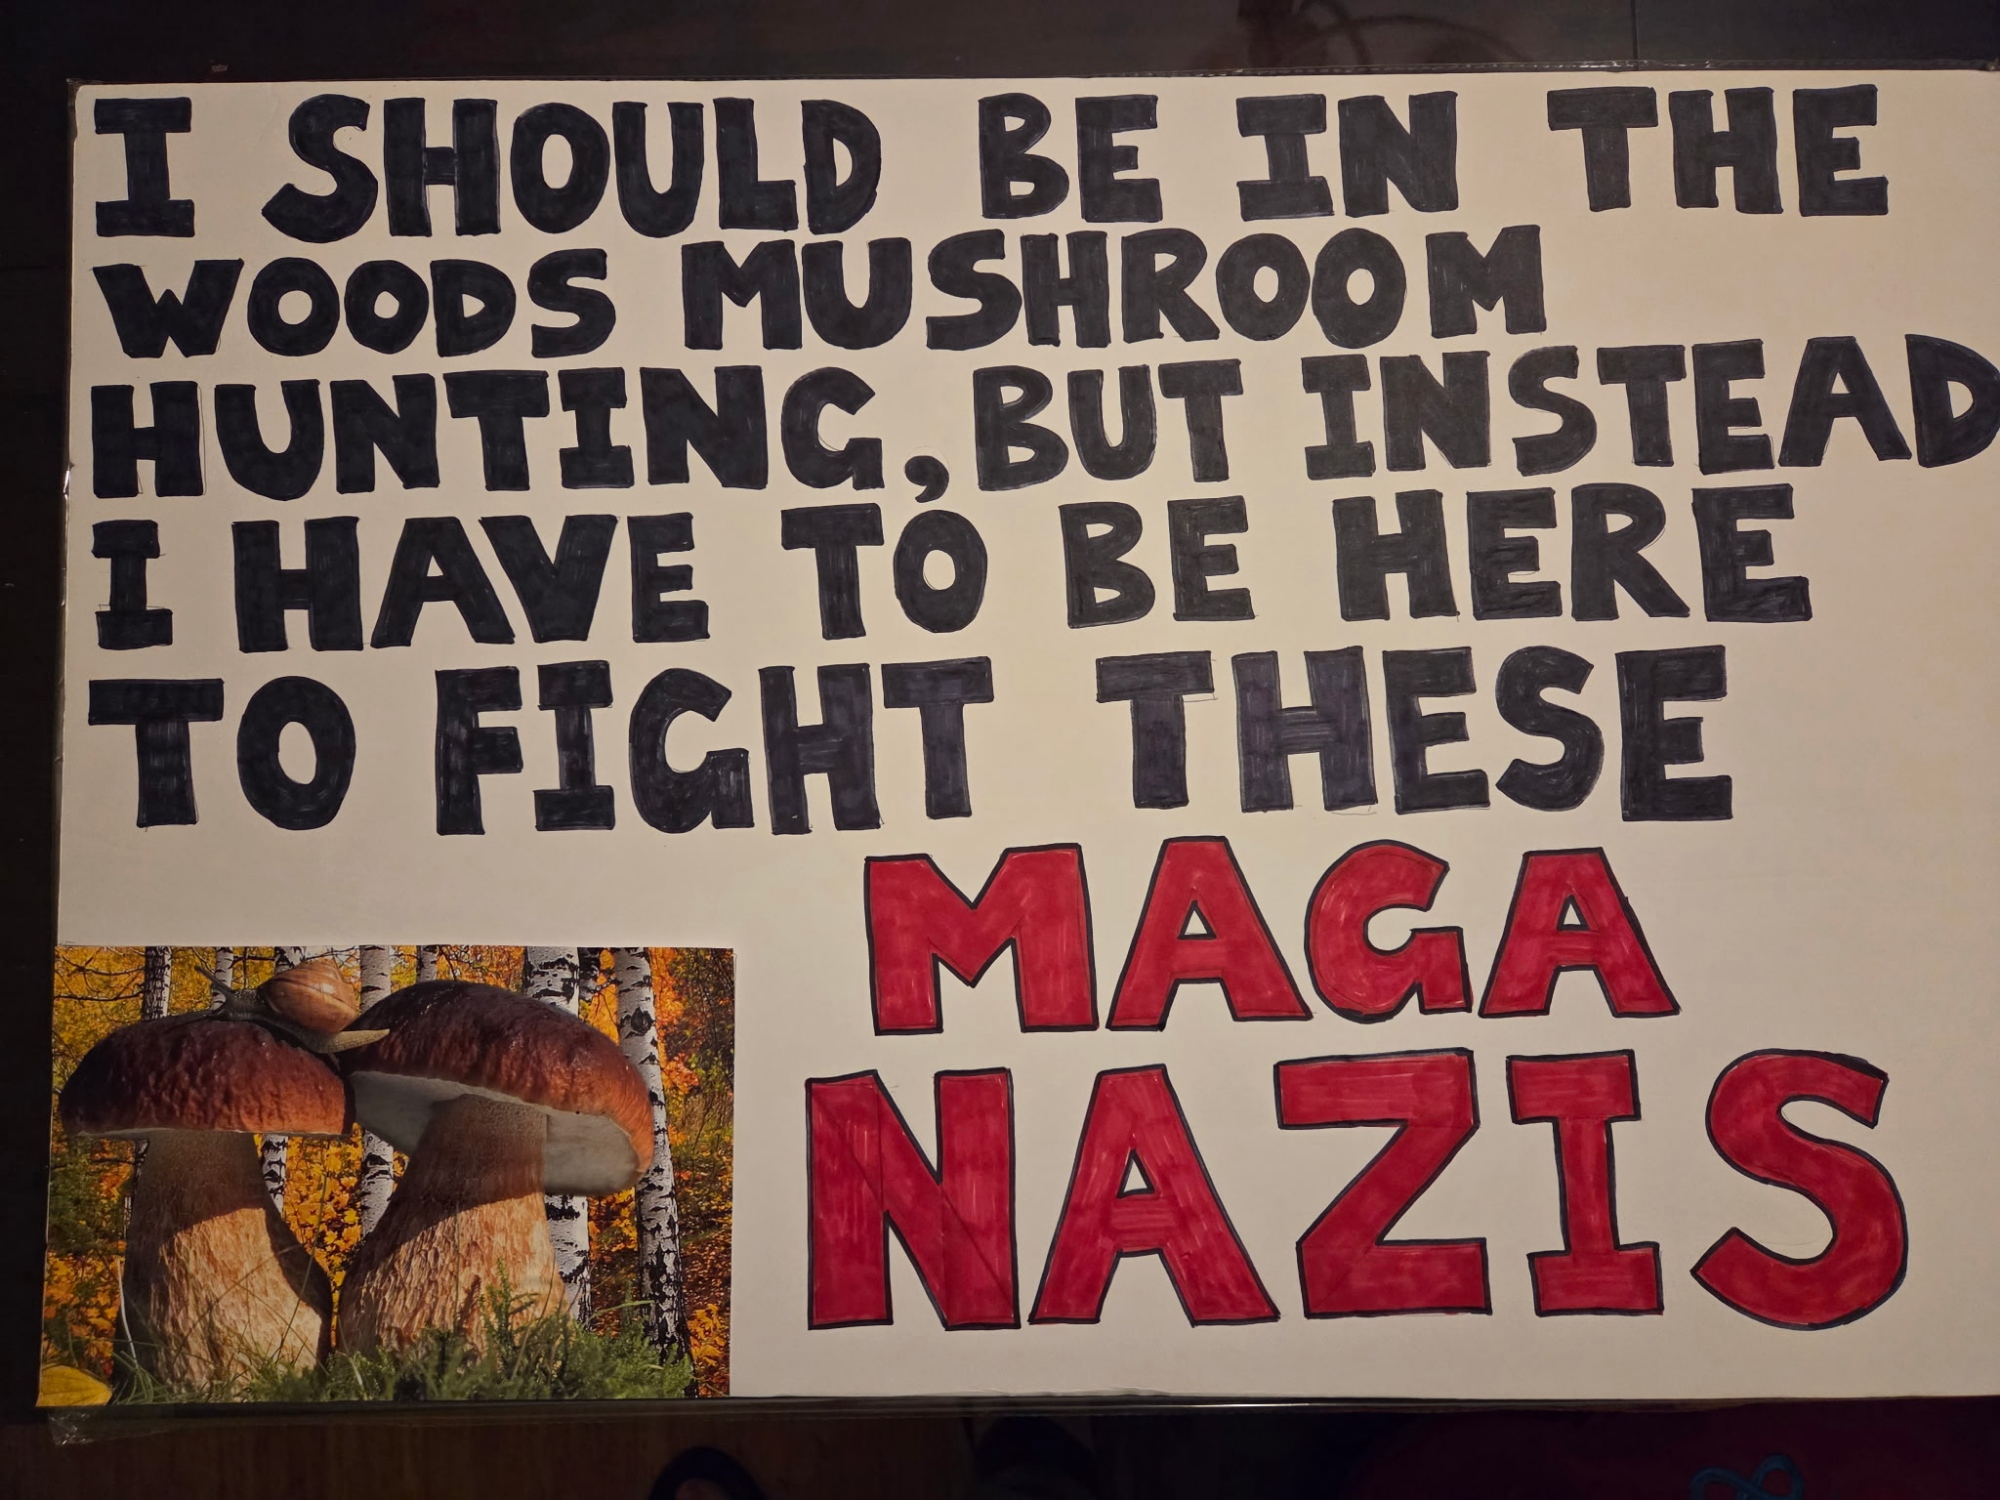 I SHOULD BE IN THE
WOODS MUSHROOM
HUNTING, BUT INSTEAD
I HAVE TO BE HERE
TO FIGHT THESE
MAGA
NAZIS